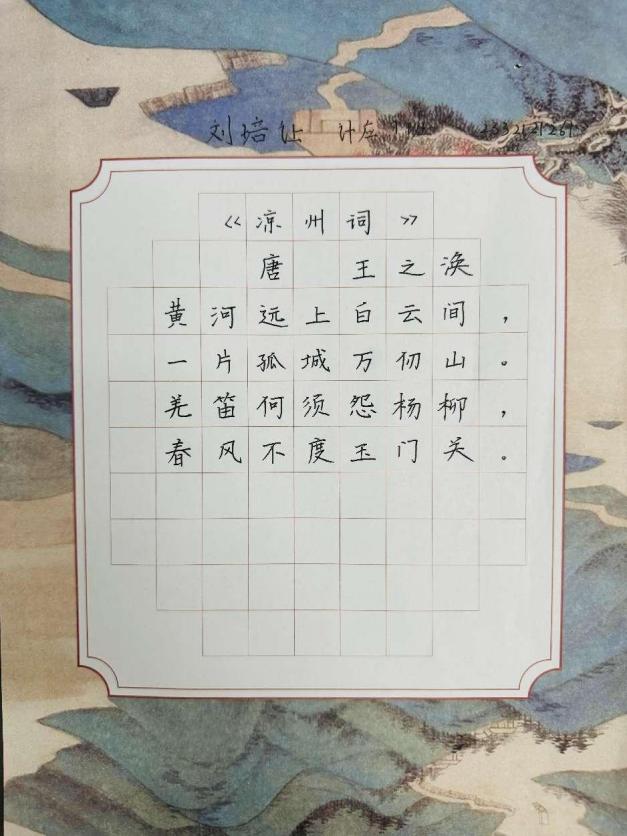 刘培让 计在
《凉州词》
唐 王之涣
黄河远上白云间，
一片孤城万仞山。
羌笛何须怨杨柳，
春风不度玉门关。